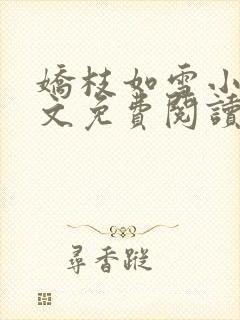 嬌枝如雪小
文免費閱讀
尋香蹤